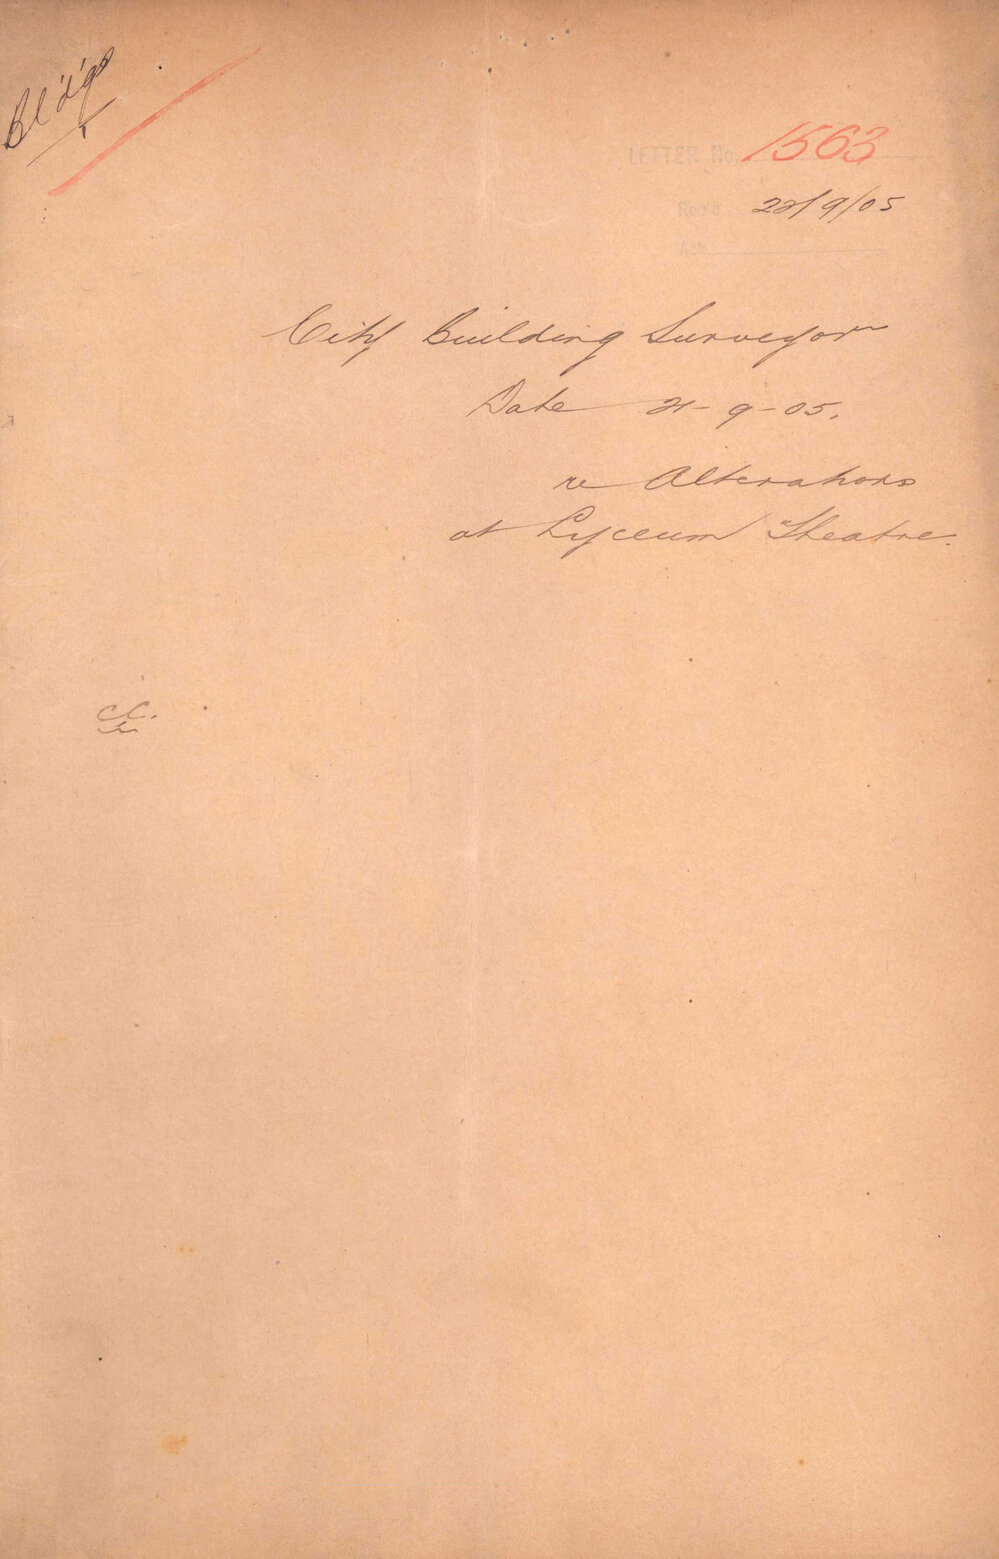 Bl'd'gs
LETTER No. 1563
Rec'd 22/9/05
Ans
City Building Surveyor
Date 21-9-05.
re Alterations
at Lyceum Theatre.